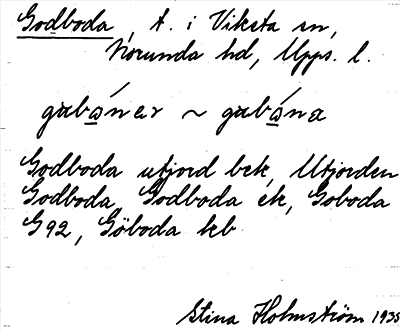 Godboda, t. i Viksta sn,
Norunda hd, Upps. l.
gꭤbånꭤr ~ gꭤbånꭤ
Godboda utjord bek, Utjorden
Godboda, Godboda ek, Goboda
G92, Göboda kb
Stina Holmström 1935